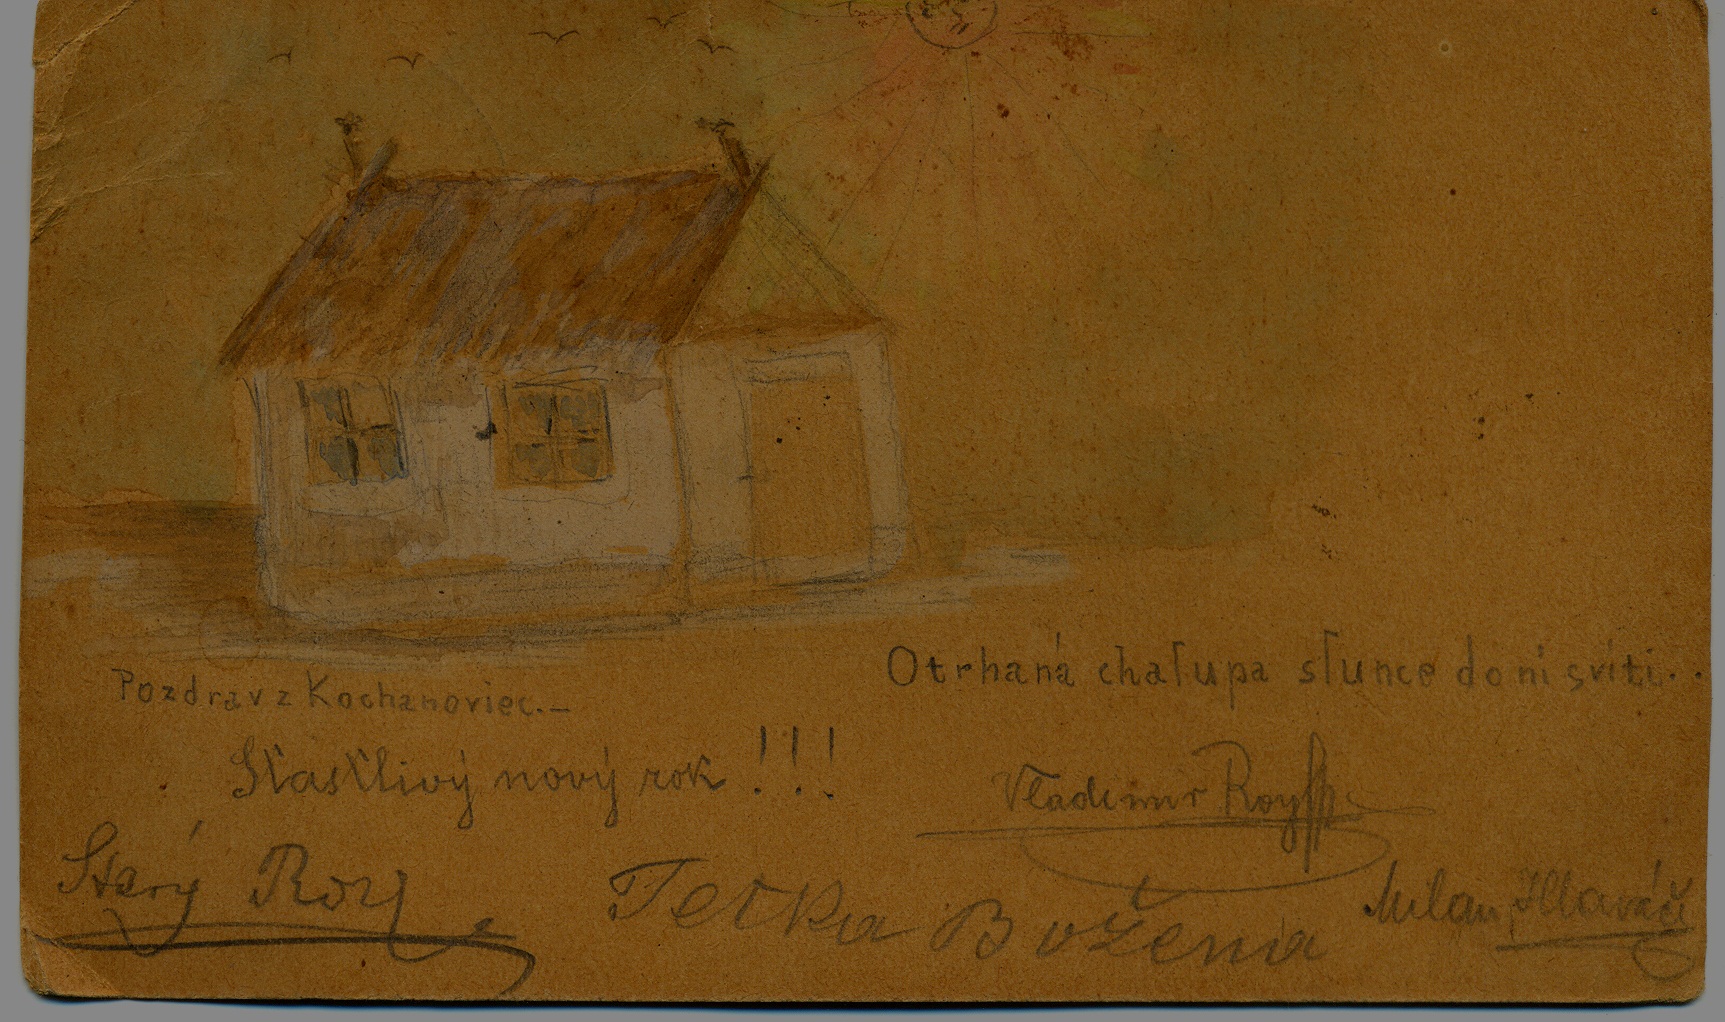 Otrhaná chalupa slunce do ní svítí..
Pozdrav z Kochanoviec.—
Šťastlivý nový rok !!!
Vladimír Roy
Starý Roy
Tetka Božena
Milan Hlaváč